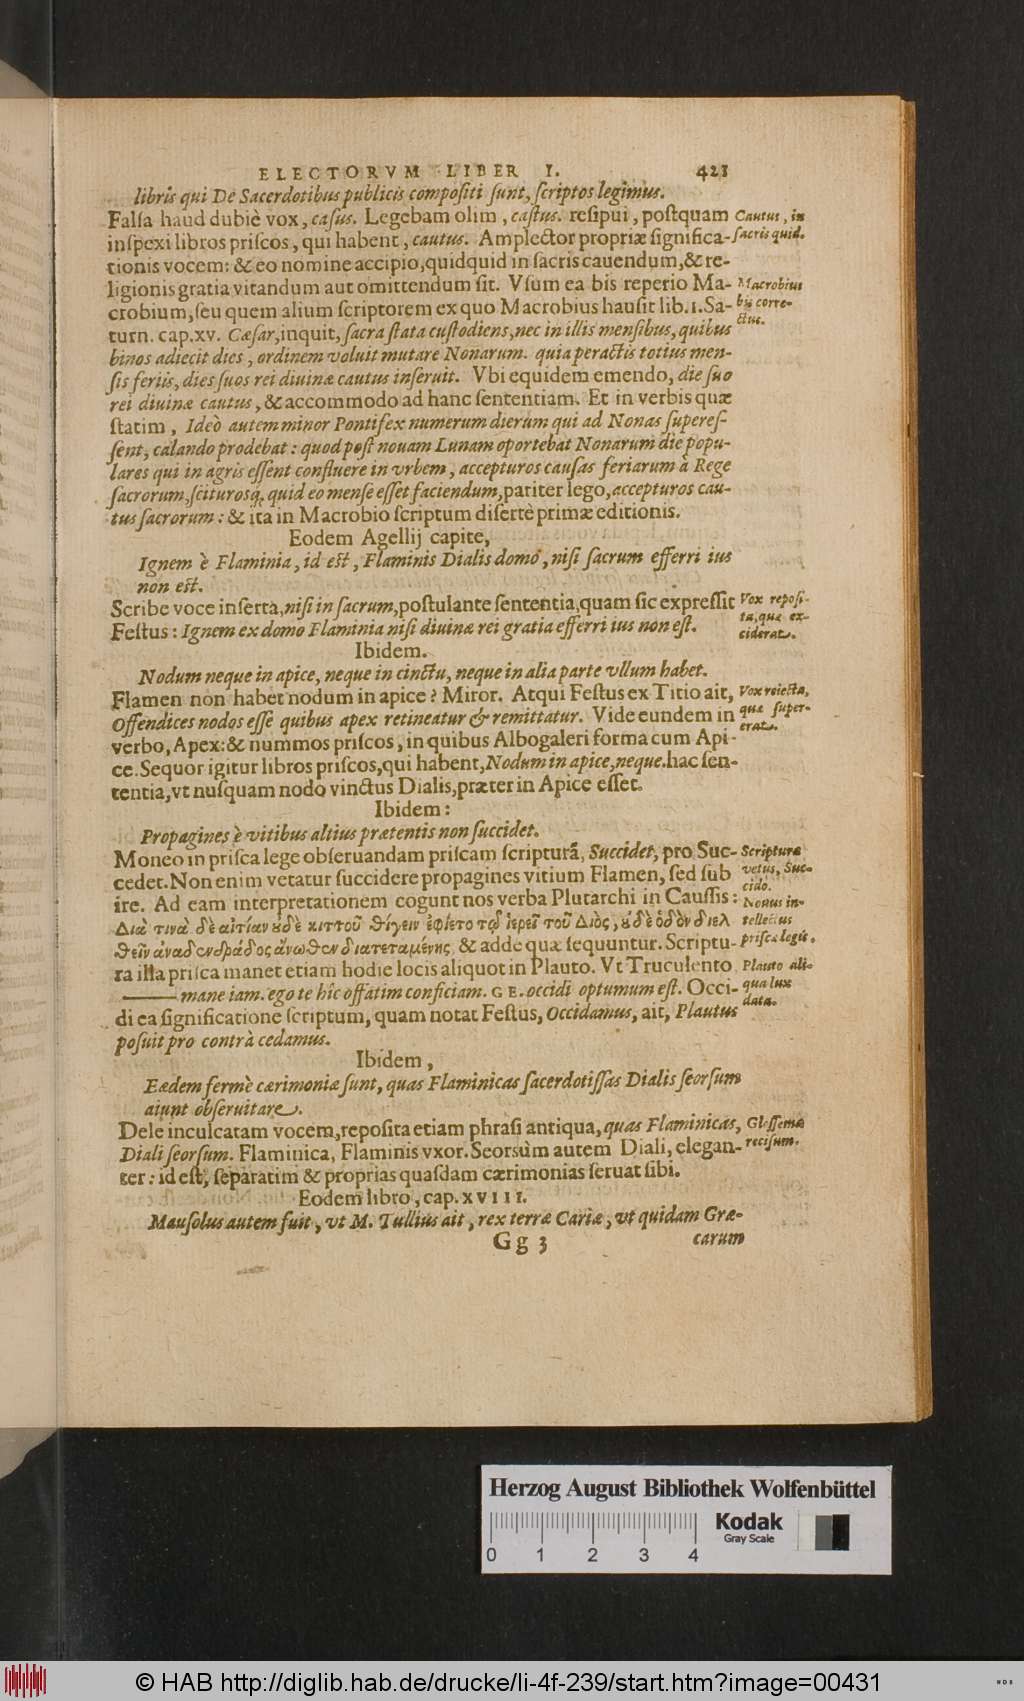 ELECTORVM LIBER I. 421
libris qui De Sacerdotibus publicis compositi sunt, scriptos legimus.
Falsa haud dubiè vox, casus. Legebam olim, castus. resipui, postquam
inspexi libros priscos, qui habent, cautus. Amplector propriæ significa-
tionis vocem: & eo nomine accipio, quidquid in sacris cauendum, & re-
ligionis gratia vitandum aut omittendum sit. Vsum ea bis reperio Ma-
crobium, seu quem alium scriptorem ex quo Macrobius hausit lib. 1. Sa-
turn. cap. xv. Cæsar, inquit, sacra stata custodiens, nec in illis mensibus, quibus
binos adiecit dies, ordinem voluit mutare Nonarum. quia peractis totius men-
sis feriis, dies suos rei diuinæ cautus inseruit. Vbi equidem emendo, die suo
rei diuinæ cautus, & accommodo ad hanc sententiam. Et in verbis quæ
statim, Ideò autem minor Pontifex numerum dierum qui ad Nonas superes-
sent, calando prodebat: quod post nouam Lunam oportebat Nonarum die popu-
lares qui in agris essent confluere in vrbem, accepturos causas feriarum à Rege
sacrorum, sciturosq. quid eo mense esset faciendum, pariter lego, accepturos cau-
tus sacrorum: & ita in Macrobio scriptum disertè primæ editionis.
Cautus, in
sacris quid.
Macrobius
bis corre-
ctus.
Eodem Agellij capite,
Ignem è Flaminia, id est, Flaminis Dialis domo, nisi sacrum efferri ius
non est.
Scribe voce inserta, nisi in sacrum, postulante sententia, quam sic expressit
Festus: Ignem ex domo Flaminia nisi diuinæ rei gratia efferri ius non est.
Vox reposi-
ta, quæ ex-
ciderat.
Ibidem.
Nodum neque in apice, neque in cinctu, neque in alia parte vllum habet.
Flamen non habet nodum in apice? Miror. Atqui Festus ex Titio ait,
Offendices nodos esse quibus apex retineatur & remittatur. Vide eundem in
verbo, Apex: & nummos priscos, in quibus Albogaleri forma cum Api-
ce. Sequor igitur libros priscos, qui habent, Nodum in apice, neque. hac sen-
tentia, vt nusquam nodo vinctus Dialis, præter in Apice esset.
Vox reiecta,
quæ super-
erat.
Ibidem:
Propagines è vitibus altius prætentis non succidet.
Moneo in prisca lege obseruandam priscam scripturā, Succidet, pro Suc-
cedet. Non enim vetatur succidere propagines vitium Flamen, sed sub
ire. Ad eam interpretationem cogunt nos verba Plutarchi in Caussis:
Διὰ τινὰ δὲ αἰτίαν ȣδὲ κιττοῦ θίγειν ἐφίετο τῷ ἱερεῖ τοῦ Διὸς, ȣδὲ ὁδὸν διελ
θεῖν ἀναδενδράδος ἄνωθεν διατεταμένης, & adde quæ sequuntur. Scriptu-
ra illa prisca manet etiam hodie locis aliquot in Plauto. Vt Truculento
—— mane iam. ego te hîc offatim conficiam. GE. occidi optumum est. Occi-
di ea significatione scriptum, quam notat Festus, Occidamus, ait, Plautus
posuit pro contrà cedamus.
Scriptura
vetus, Suc-
cido.
Nouus in-
tellectus
priscæ legis.
Plauto ali-
qua lux
data.
Ibidem,
Eædem fermè cærimoniæ sunt, quas Flaminicas sacerdotissas Dialis seorsum
aiunt obseruitare.
Dele inculcatam vocem, reposita etiam phrasi antiqua, quas Flaminicas,
Diali seorsum. Flaminica, Flaminis vxor. Seorsùm autem Diali, elegan-
ter: id est, separatim & proprias quasdam cærimonias seruat sibi.
Glossema
recisum.
Eodem libro, cap. XVIII.
Mausolus autem fuit, vt M. Tullius ait, rex terræ Cariæ, vt quidam Græ-
Gg 3 carum
Herzog August Bibliothek Wolfenbüttel
Kodak
Gray Scale
0 1 2 3 4
© HAB http://diglib.hab.de/drucke/li-4f-239/start.htm?image=00431